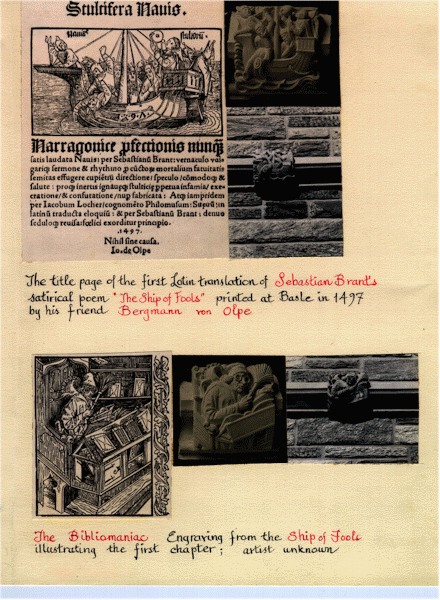 Stultifera Nauis.
Narragonice ꝓfectionis nunqȝ
satis laudata Nauis: per Sebastianū Brant: vernaculo vul-
gariqȝ sermone & rhythmo
semitas effugere cupiētū directione/ speculo/ cōmodoqȝ &
salute: proqȝ inertis ignaueqȝ stulticie ꝑpetua infamia/ exe-
cratione/ & confutatione/ nup fabricata: Atqȝ iampridem
per Iacobum Locher/ cognomēto Philomusum: Sueuū: in
latinū traducta eloquiū: & per Sebastianū Brant: denuo
seduloqȝ reuisa: foelici exorditur principio.
.1497.
Nihil sine causa.
Io. de Olpe
The title page of the first Latin translation of Sebastian Brant's
satirical poem "The Ship of Fools" printed at Basle in 1497
by his friend Bergmann von Olpe
The Bibliomaniac Engraving from the Ship of Fools
illustrating the first chapter; artist unknown